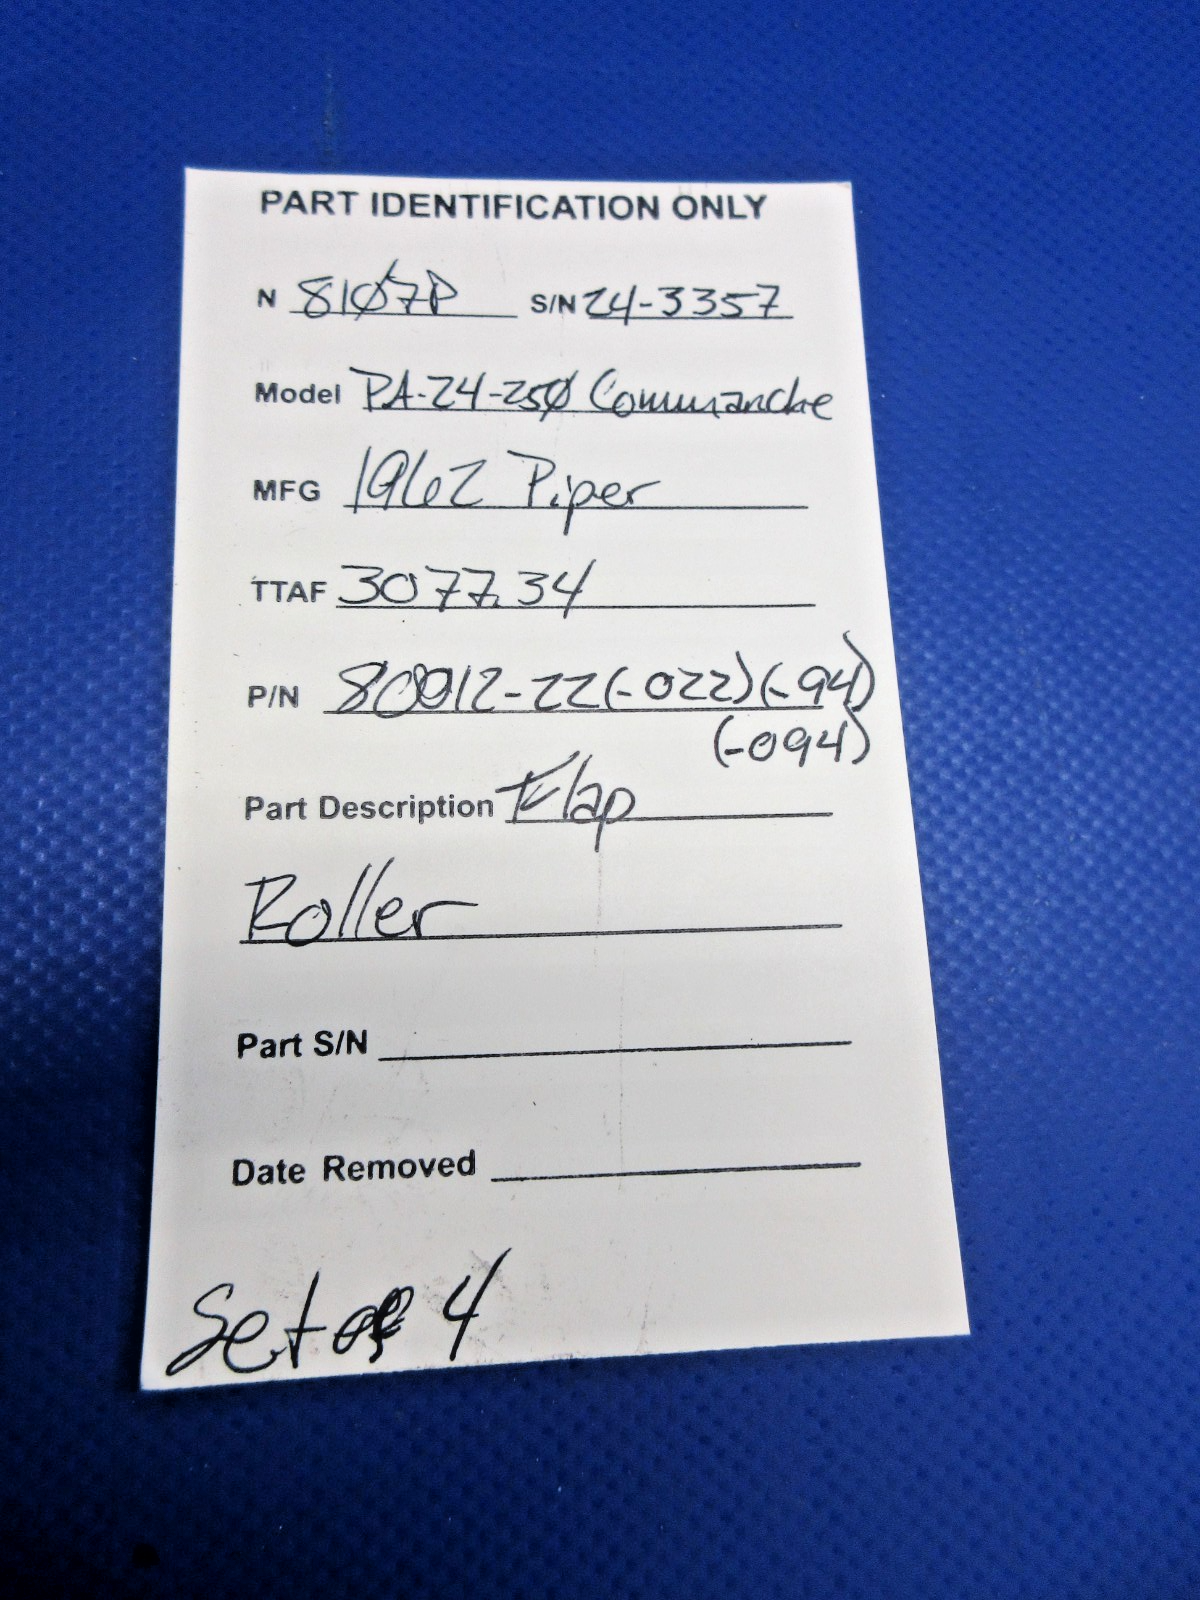 PART IDENTIFICATION ONLY
N 81Ø7P S/N 24-3357
Model PA-24-25Ø Commanche
MFG 1962 Piper
TTAF 3077.34
P/N 80012-22(-022)(-94)
(-094)
Part Description Flap
Roller
Part S/N
Date Removed
Set of 4